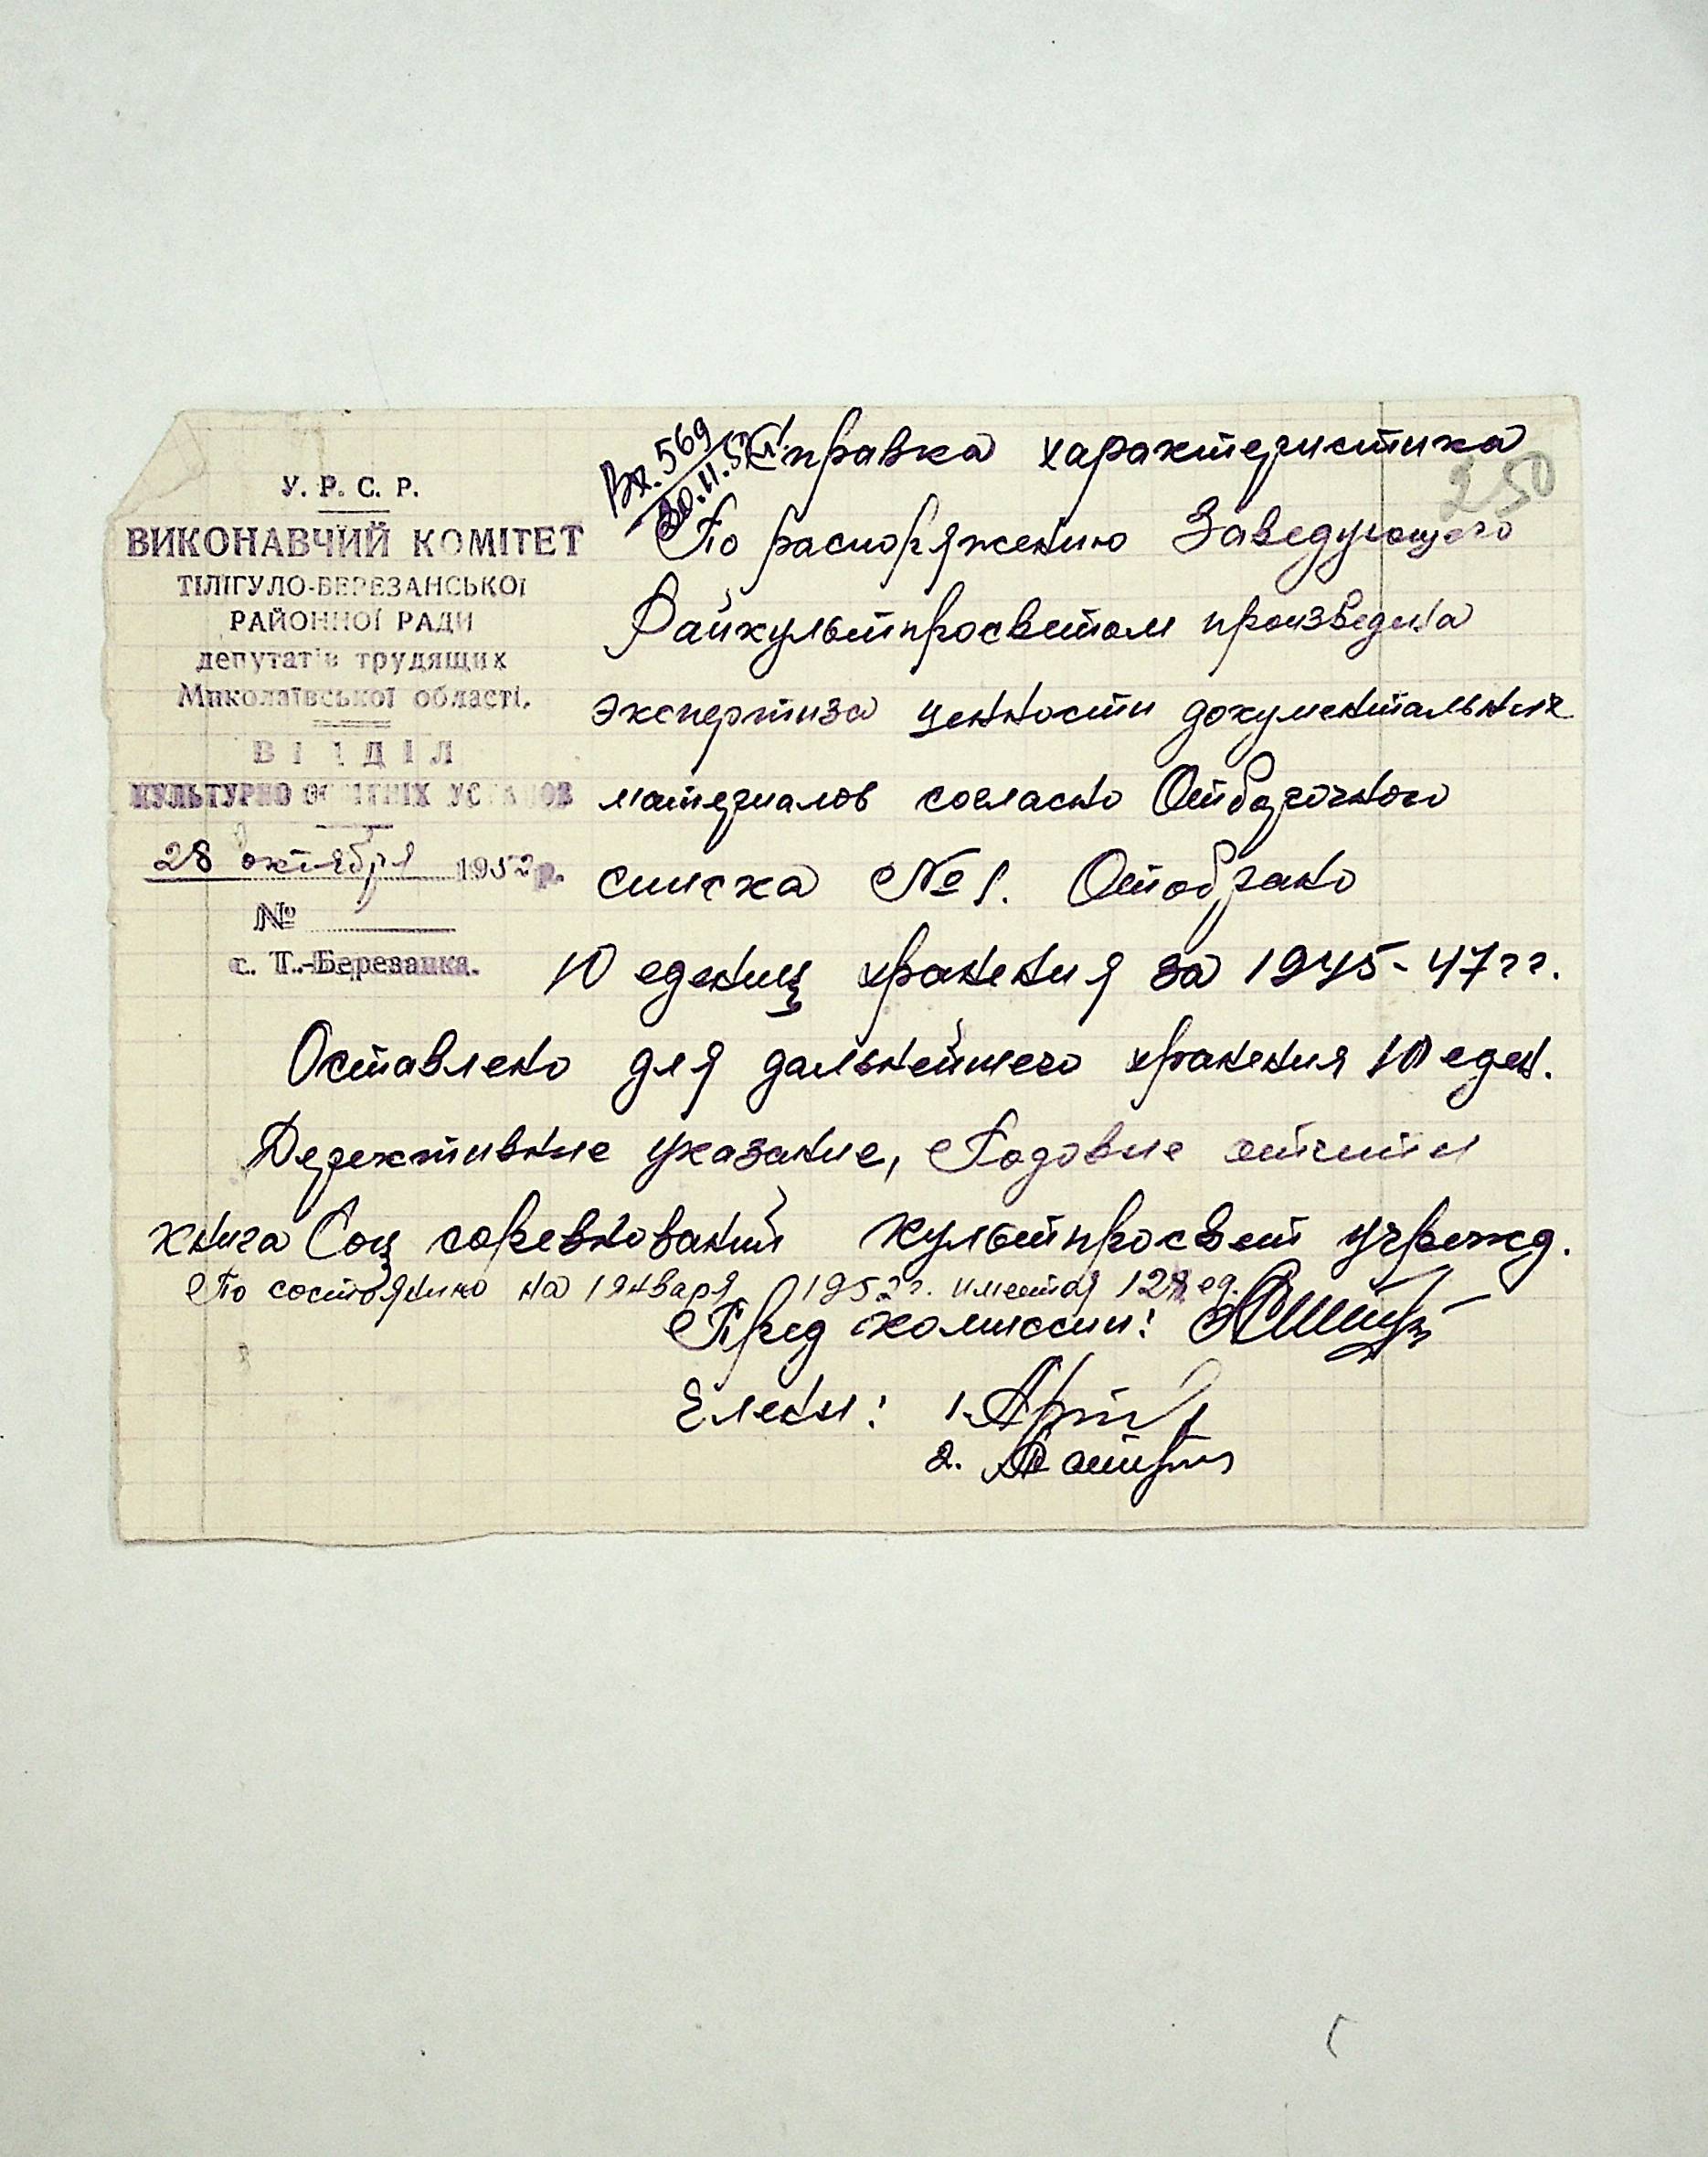 У. Р. С. Р.
ВИКОНАВЧИЙ КОМІТЕТ
ТІЛІГУЛО-БЕРЕЗАНСЬКОЇ
РАЙОННОЇ РАДИ
депутатів трудящих
Миколаївської області.
ВІДДІЛ
КУЛЬТУРНО ОСВІТНІХ УСТАНОВ
28 октября 1952 р.
№
с. Т.-Березанка.
Вх. 569
20.11.52
250
Справка характеристика
По распоряжению Заведующего
Райкультпросветом произведена
экспертиза ценности документальних
материалов согласно Отборочного
списка №1. Отобрано
10 едениц хранения за 1945-47 гг.
Оставлено для дальнейшего хранения 10 еден.
Дерективние указание, Годовие отчети
книга Соц соревнований культпросвет учрежд.
По состоянию на 1 января 1952 г. имеется ед.
Пред комиссии:
Члены: 1.
2.